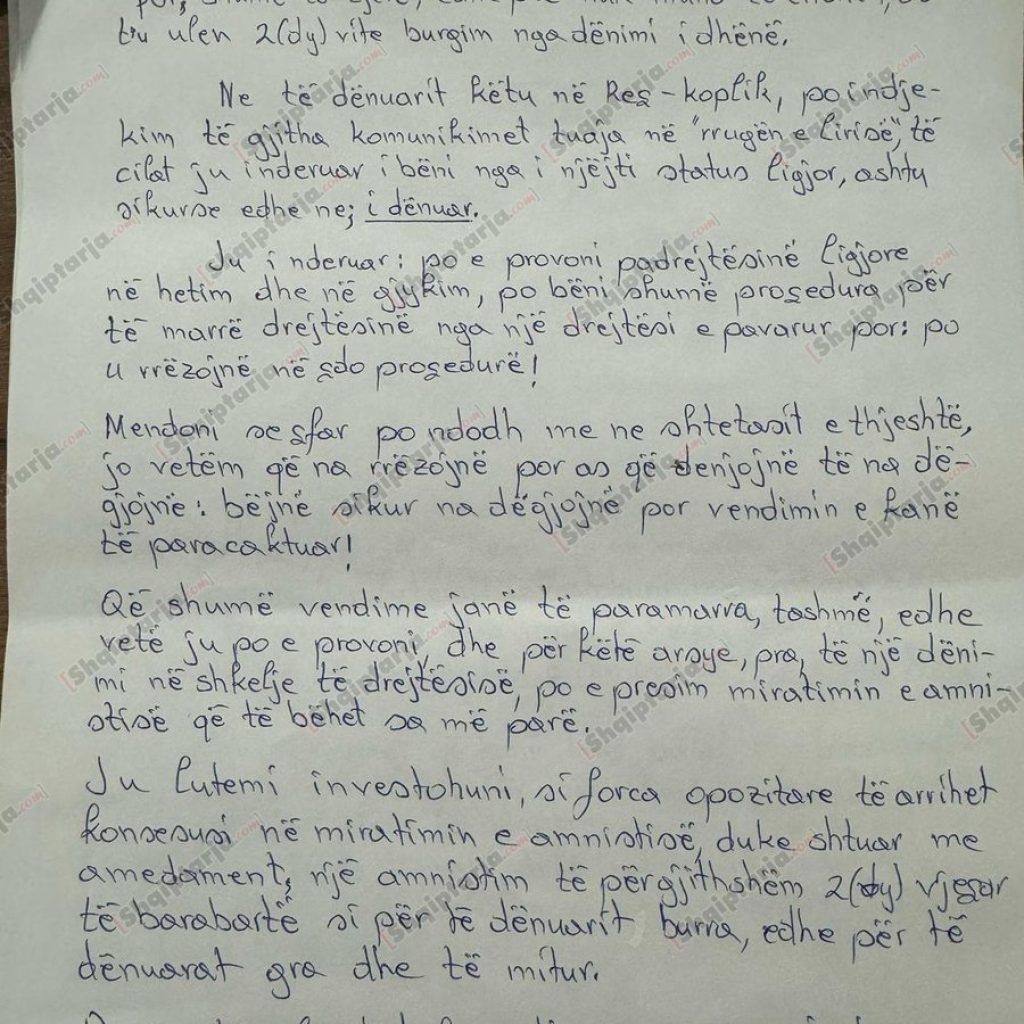 t'iu ulen 2(dy) vite burgim nga dënimi i dhënë.
Ne të dënuarit këtu në Reç-koplik, po indje-
kim të gjitha komunikimet tuaja në "rrugën e lirisë", të
cilat ju i nderuar i bëni nga i njëjti status ligjor, ashtu
sikurse edhe ne; i dënuar.
Ju i nderuar: po e provoni padrejtësinë ligjore
në hetim dhe në gjykim, po bëni shumë proçedura për
të marrë drejtësinë nga një drejtësi e pavarur por: po
u rrëzojnë në çdo proçedurë!
Mendoni se çfar po ndodh me ne shtetasit e thjeshtë,
jo vetëm që na rrëzojnë por as që denjojnë të na dë-
gjojnë: bëjnë sikur na dëgjojnë por vendimin e kanë
të paracaktuar!
Që shumë vendime janë të paramarra, tashmë, edhe
vetë ju po e provoni, dhe për këtë arsye, pra, të një dëni-
mi në shkelje të drejtësisë, po e presim miratimin e amni-
stisë që të bëhet sa më parë.
Ju lutemi investohuni, si forca opozitare të arrihet
konsesusi në miratimin e amnistisë, duke shtuar me
amedament, një amnistim të përgjithshëm 2(dy) vjeçar
të barabartë si për të dënuarit burra, edhe për të
dënuarat gra dhe të mitur.
[Shqiptarja.com]